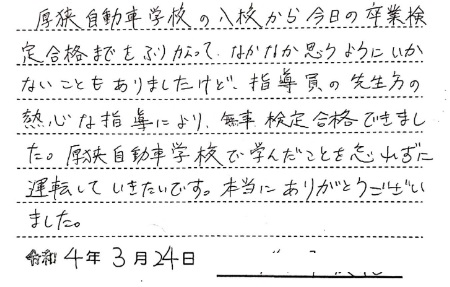 厚狭自動車学校の入校から今日の卒業検
定合格までをふりかえって、なかなか思うようにいか
ないこともありましたけど、指導員の先生方の
熱心な指導により、無事検定合格できまし
た。厚狭自動車学校で学んだことを忘れずに
運転していきたいです。本当にありがとうござい
ました。
令和4年3月24日